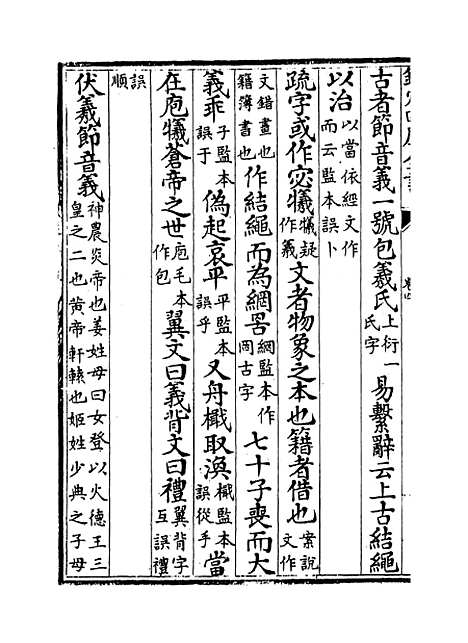 古者節音義一號包羲氏上衍一氏字易繫辭云上古結繩
以治以當依經文作而云監本誤卜
疏字或作宓犧犧疑作義文者物象之本也籍者借也案説文作
文錯畫也籍簿書也作結繩而為網罟網監本作罔古字七十子喪而大
義乖子監本誤于偽起哀平平監本誤乎又舟檝取渙檝監本誤從手當
在庖犧蒼帝之世庖毛本作包翼文曰義背文曰禮翼背字互誤禮
誤順
伏羲節音義神農炎帝也姜姓母曰女登以火德王三皇之二也黄帝軒轅也姬姓少典之子母